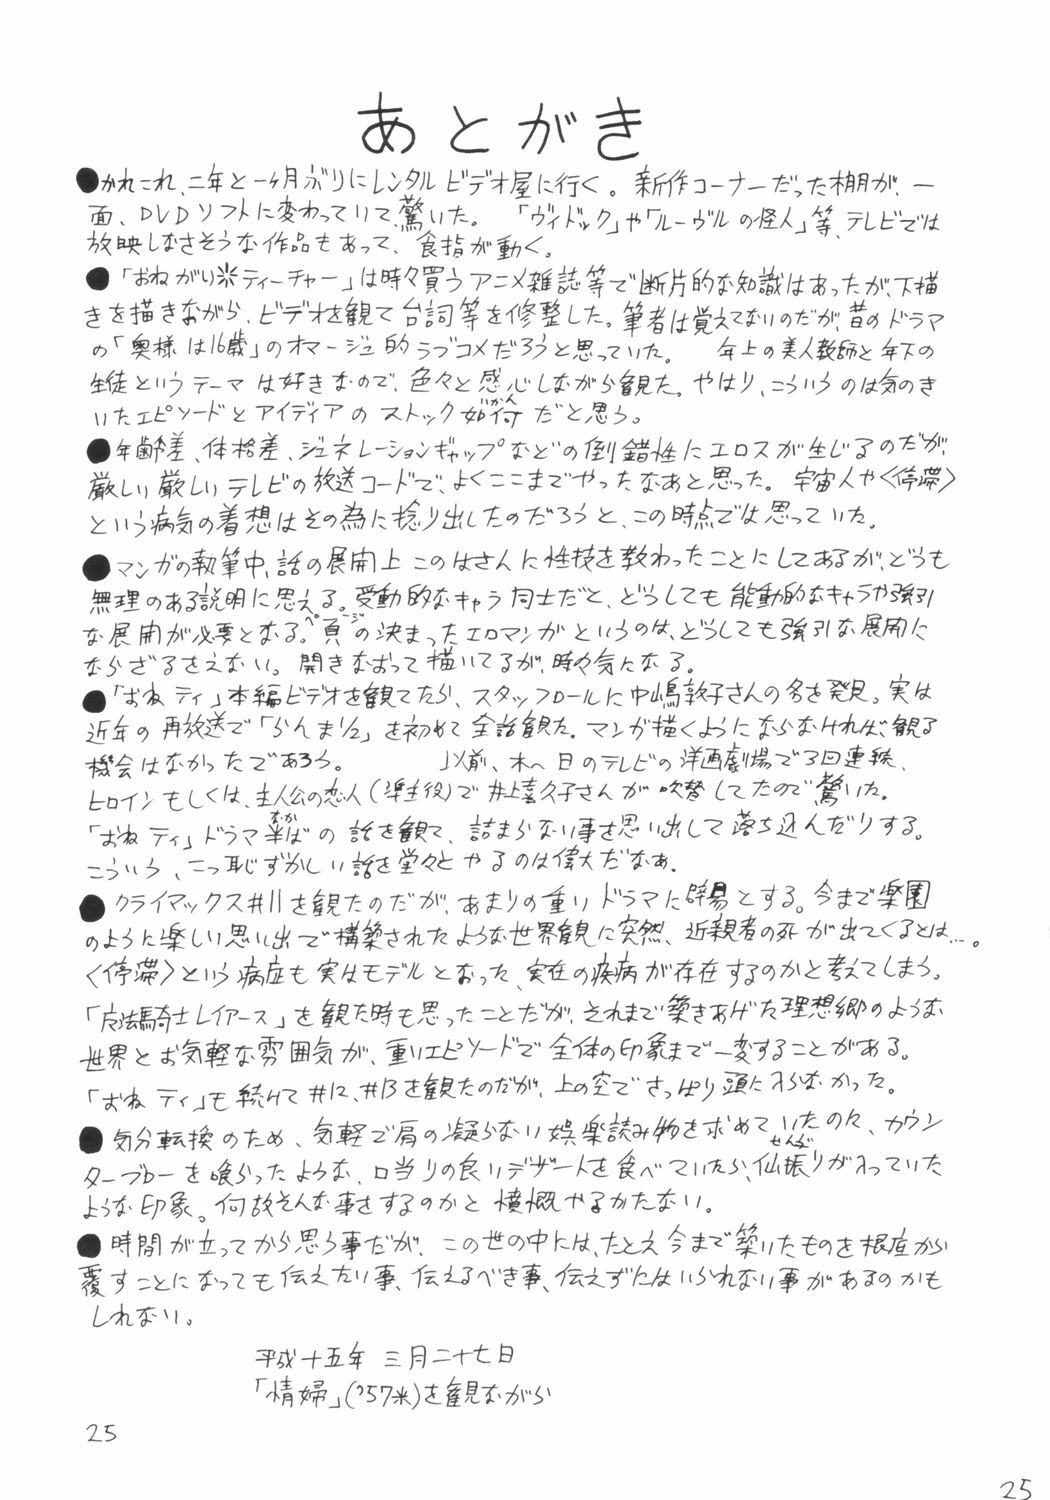 あとがき
●かれこれ、二年と一ヶ月ぶりにレンタルビデオ屋に行く。新作コーナーだった棚が、一
面、DVDソフトに変わっていて驚いた。「ヴィドック」や「ルーヴルの怪人」等、テレビでは
放映しなさそうな作品もあって、食指が動く。
●「おねがい＊ティーチャー」は時々買うアニメ雑誌等で断片的な知識はあったが、下描
きを描きながら、ビデオを観て台詞等を修整した。筆者は覚えてないのだが、昔のドラマ
の「奥様は16歳」のオマージュ的ラブコメだろうと思っていた。 年上の美人教師と年下の
生徒というテーマは好きなので、色々と感心しながら観た。やはり、こういうのは気のき
いたエピソードとアイディアのストック如何だと思う。
いかん
●年齢差、体格差、ジェネレーションギャップなどの倒錯性にエロスが生じるのだが、
厳しい厳しいテレビの放送コードで、よくここまでやったなあと思った。宇宙人や〈停滞〉
という病気の着想はその為に捻り出したのだろうと、この時点では思っていた。
●マンガの執筆中、話の展開上このはさんに性技を教わったことにしてあるが、どうも
無理のある説明に思える。受動的なキャラ同士だと、どうしても能動的なキャラや強引
な展開が必要となる。頁の決まったエロマンガというのは、どうしても強引な展開に
ページ
ならざるをえない。開きなおって描いてるが、時々気になる。
●「おねティ」本編ビデオを観てたら、スタッフロールに中嶋敦子さんの名を発見。実は
近年の再放送で「らんま1/2」を初めて全話観た。マンガ描くようにならなければ、観る
機会はなかったであろう。 以前、木〜日のテレビの洋画劇場で3回連続、
ヒロインもしくは、主人公の恋人（準主役）で井上喜久子さんが吹替してたので驚いた。
「おねティ」ドラマ半ばの話を観て、詰まらない事を思い出して落ち込んだりする。
なか
こういう、こっ恥ずかしい話を堂々とやるのは偉大だなぁ。
●クライマックス#11を観たのだが、あまりの重いドラマに辟易とする。今まで楽園
のように楽しい思い出で構築されたような世界観に突然、近親者の死が出てくるとは…。
〈停滞〉という病症も実はモデルとなった、実在の疾病が存在するのかと考えてしまう。
「魔法騎士レイアース」を観た時も思ったことだが、それまで築きあげた理想郷のような
世界とお気軽な雰囲気が、重いエピソードで全体の印象まで一変することがある。
「おねティ」も続けて#12、#13を観たのだが、上の空でさっぱり頭に入らなかった。
●気分転換のため、気軽で肩の凝らない娯楽読み物を求めていたのに、カウン
ターブローを喰らったような、口当りの良いデザートを食べていたら、仙振りが入っていた
せんぶ
ような印象。何故そんな事をするのかと憤慨やるかたない。
●時間が立ってから思う事だが、この世の中には、たとえ今まで築いたものを根底から
覆すことになっても伝えたい事、伝えるべき事、伝えずにはいられない事があるのかも
しれない。
平成十五年 三月二十七日
「情婦」（'57米）を観ながら
25
25